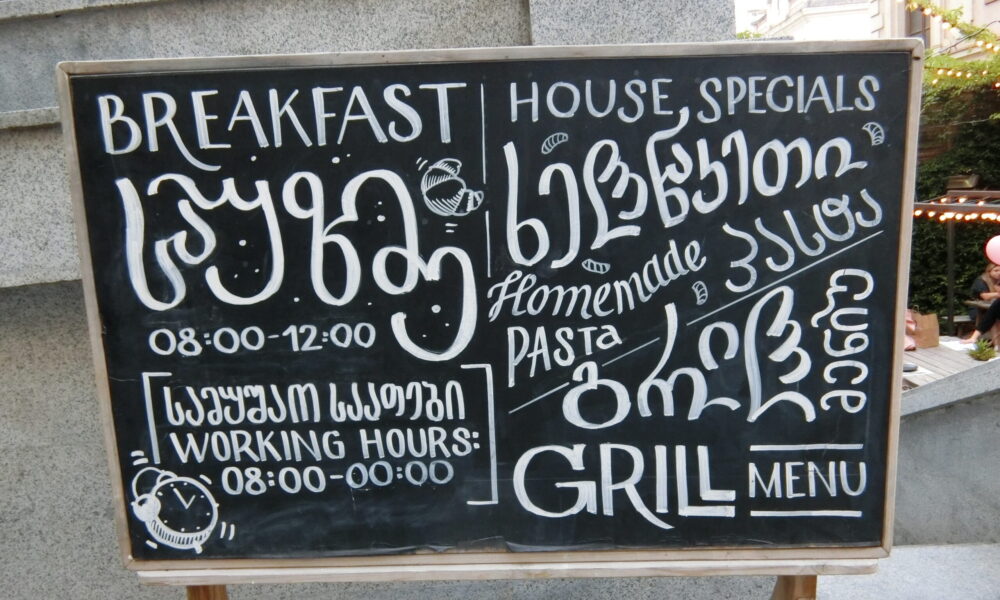 BREAKFAST
საუზმე
08:00-12:00
სამუშაო საათები
WORKING HOURS:
08:00-00:00
HOUSE SPECIALS
ხელნაკეთი
პასტა
Homemade
PASTA
გრილ
მენიუ
GRILL MENU